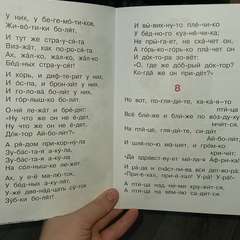 У них, у бе-ге-мо́-ти-ков,
Жи-во́-ти-ки бо-ля́т.
И тут же стра-у-ся́-та
Виз-жа́т, как по-ро-ся́-та.
Ах, жа́л-ко, жа́л-ко, жа́л-ко
Бе́д-ных стра-у-ся́т!
И корь, и диф-те-ри́т у них,
И о́с-па, и брон-хи́т у них,
И го-ло-ва́ бо-ли́т у них,
И го́р-лыш-ко бо-ли́т.
О-ни́ ле-жа́т и бре́-дят:
«Ну что же он не е́-дет,
Ну что же он не е́-дет,
До́к-тор Ай-бо-ли́т?»
А ря́-дом при-кор-ну́-ла
Зу-ба́с-та-я а-ку́-ла,
Зу-ба́с-та-я а-ку́-ла
На со́л-ныш-ке ле-жи́т.
Ах, у е-ё ма-лю́-ток,
У бе́д-ных а-ку-ля́т,
У-же́ две-на́д-цать су́-ток
Зу́б-ки бо-ля́т!
И вы́-вих-ну-то пле-чи-ко́
У бе́д-но-го куз-не́-чи-ка;
Не пры́-га-ет, не ска́-чет он,
А го́рь-ко-го́рь-ко пла́-чет он
И до́к-то-ра зо-вёт:
«О, где же до́б-рый до́к-тор?
Ког-да́ же он при-дёт?»
8
Но вот, по-гля-ди́-те, ка-ка́-я-то
пти́-ца
Всё бли́-же и бли́-же по во́з-ду-ху
На пти́-це, гля-ди́-те, си-ди́т
И
«Да здра́вст-ву-ет ми́-ла-я
А́ф-ри-ка!»
И ра́-да и сча́ст-ли-ва вся дет-во-ра́:
«При-е́-хал, при-е́-хал! У-ра́! У-ра́!»
А пти́-ца над ни́-ми кру́-жит-ся,
А пти́-ца на зе́м-лю са-ди́т-ся.